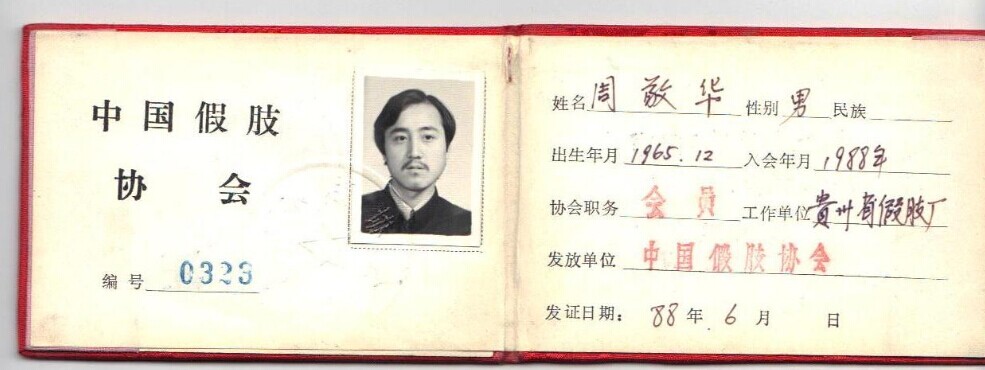 中国假肢
协会
编号 0323
姓名 周敬华 性别 男 民族
出生年月 1965.12 入会年月 1988年
协会职务 会员 工作单位 貴州省假肢厂
发放单位 中国假肢协会
发证日期：88年6月 日